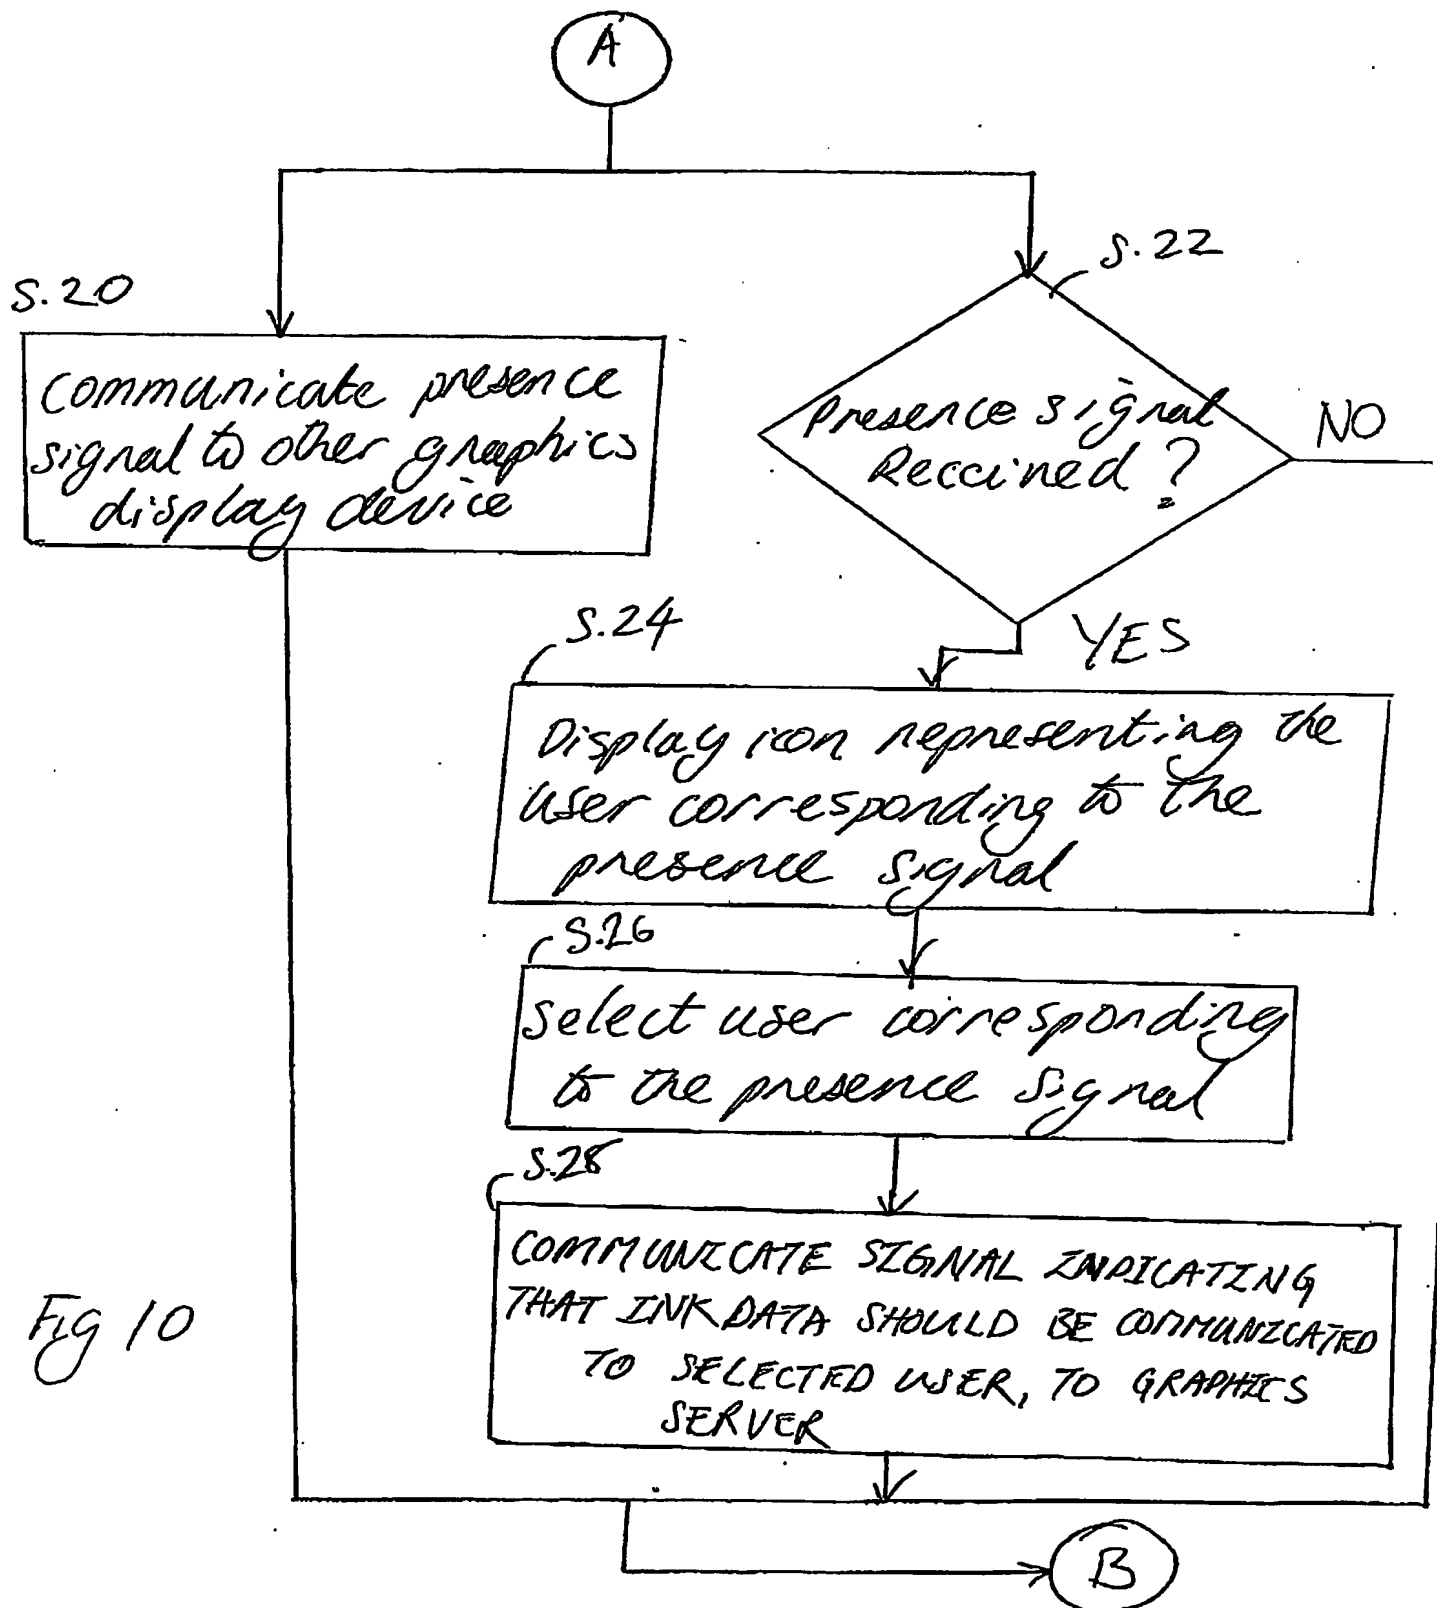 A
S.20
Communicate presence
signal to other graphics
display device
S.22
Presence signal
Received ?
NO
YES
S.24
Display icon representing the
user corresponding to the
presence signal
S.26
Select user corresponding
to the presence signal
S.28
COMMUNICATE SIGNAL INDICATING
THAT INK DATA SHOULD BE COMMUNICATED
TO SELECTED USER, TO GRAPHICS
SERVER
Fig 10
B